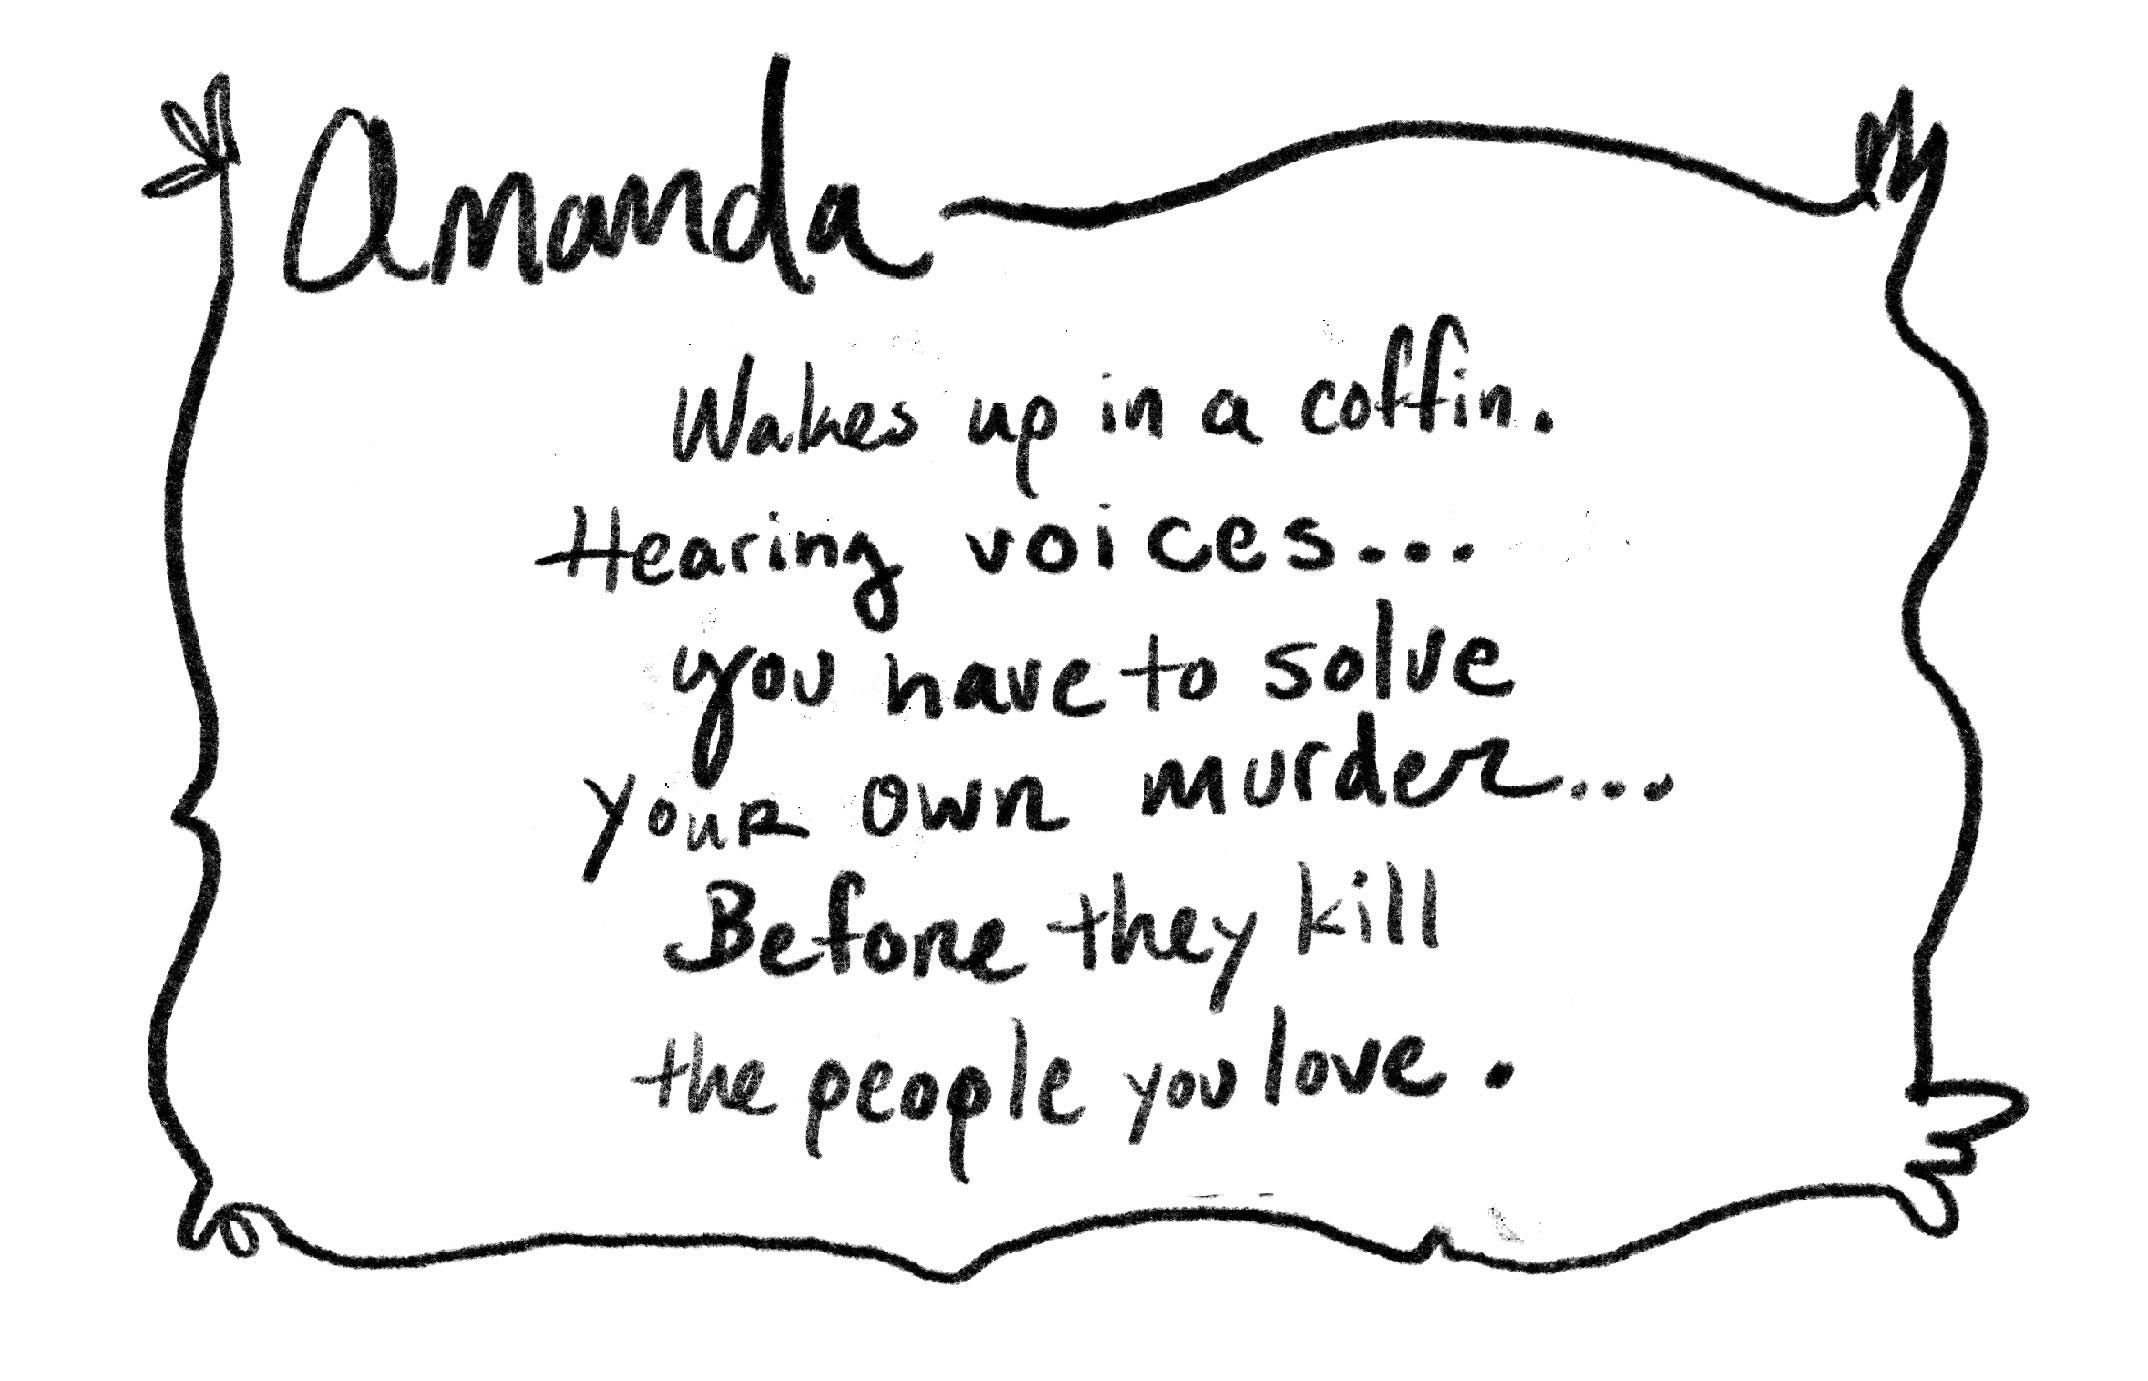 Amanda
Wakes up in a coffin.
Hearing voices...
you have to solve
your own murder...
Before they kill
the people you love.